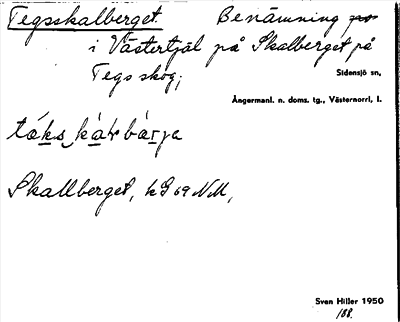 Tegsskalberget. Benämning
i Västertjäl på Skalberget på
Tegs skog;
Sidensjö sn,
Ångermanl. n. doms. tg., Västernorrl, l.
Skallberget,
Sven Hiller 1950
188.